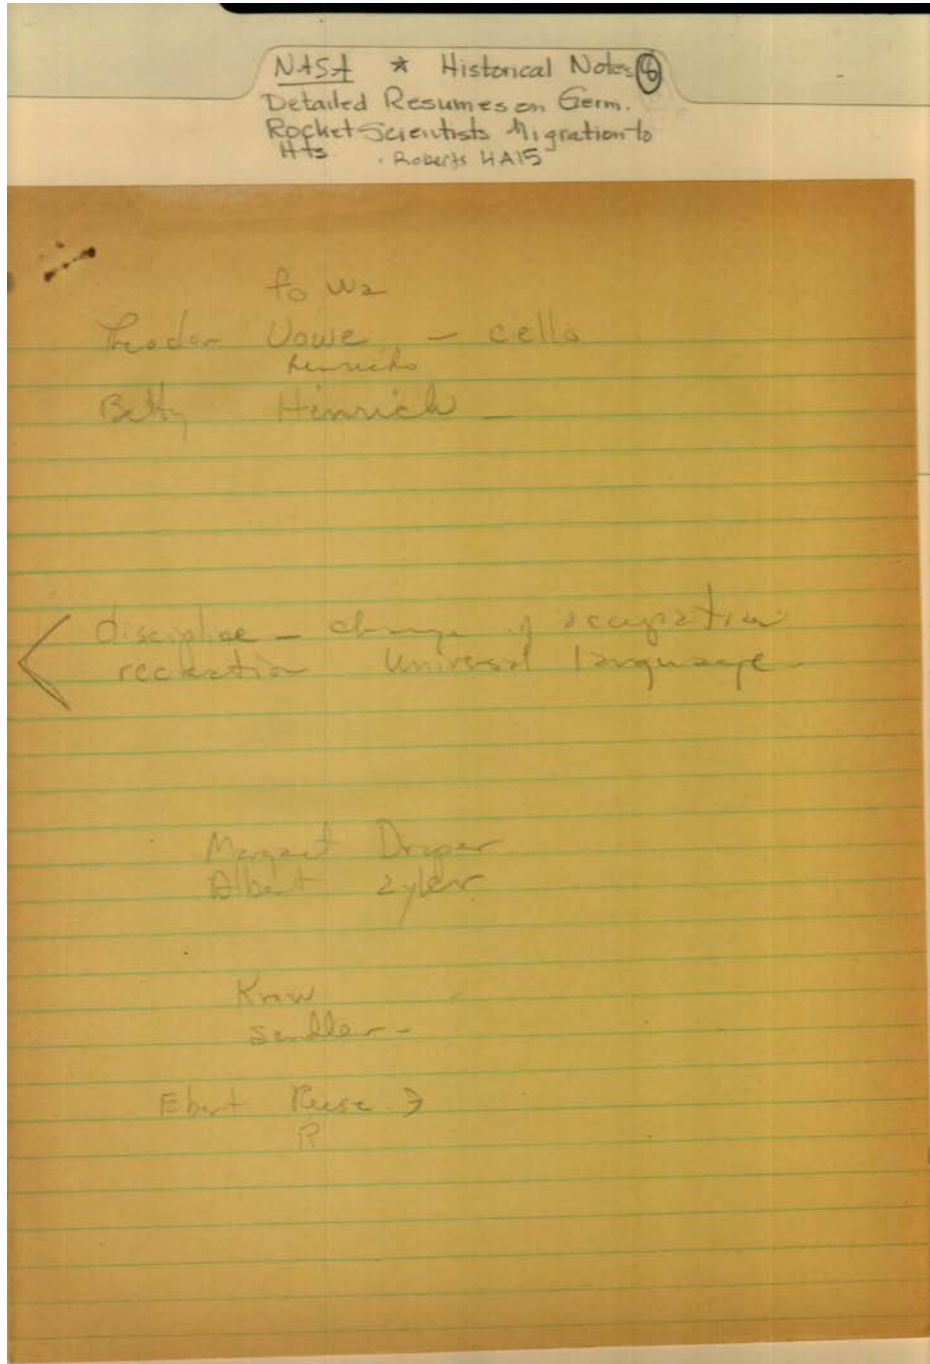 NASA * Historical Notes 6
Detailed Resumes on Germ.
Rocket Scientists Migration to
Hts. Roberts HA15
Theodor Vowe - cello
Betty Hinrich -
discipline - change of occupation
recreation Universal language
Margaret Draper
Albert Zyler
Krow
Sendler -
Ebert Reese
R